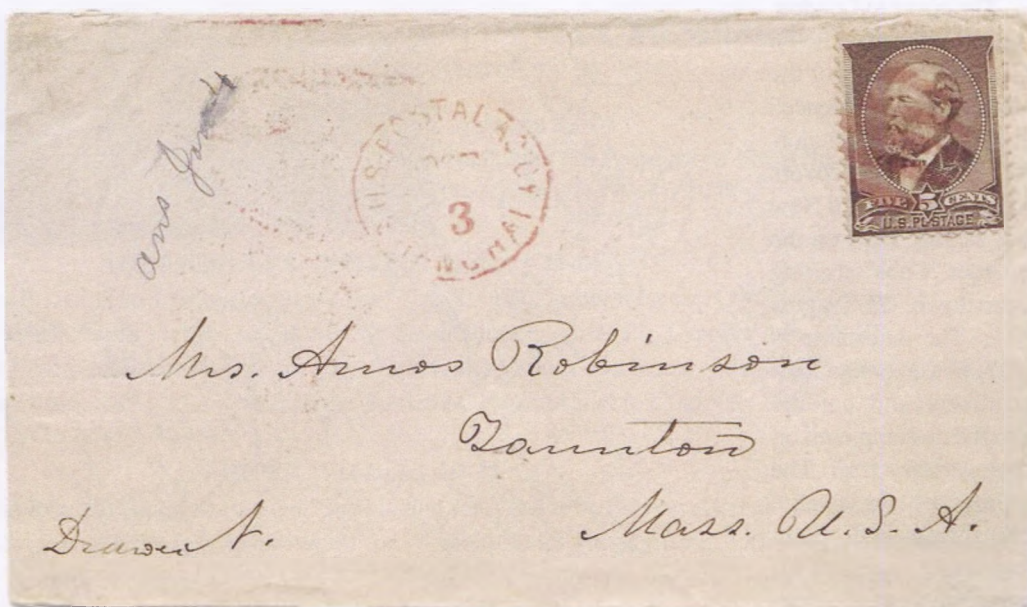 ans Jan 4
U.S. POSTAL AGCY
3
SHANGHAI
FIVE 5 CENTS
U.S. POSTAGE
Mrs. Amos Robinson
Taunton
Mass. U. S. A.
Drawer N.